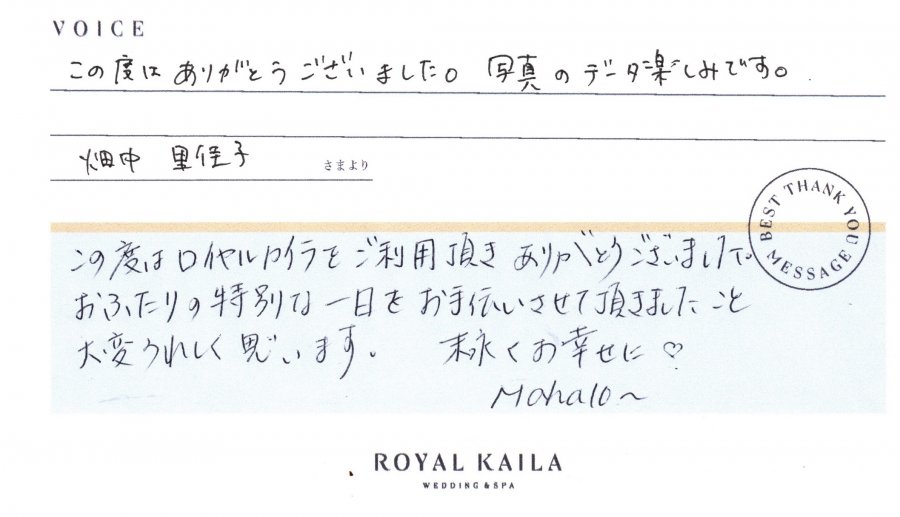 VOICE
この度は ありがとうございました。 写真のデータ楽しみです。
畑中 里佳子 さまより
BEST THANK YOU MESSAGE
この度はロイヤルカイラをご利用頂き ありがとうございました。
おふたりの特別な一日をお手伝いさせて頂きましたこと
大変うれしく思います。 末永くお幸せに♡
Mahalo~
ROYAL KAILA
WEDDING & SPA